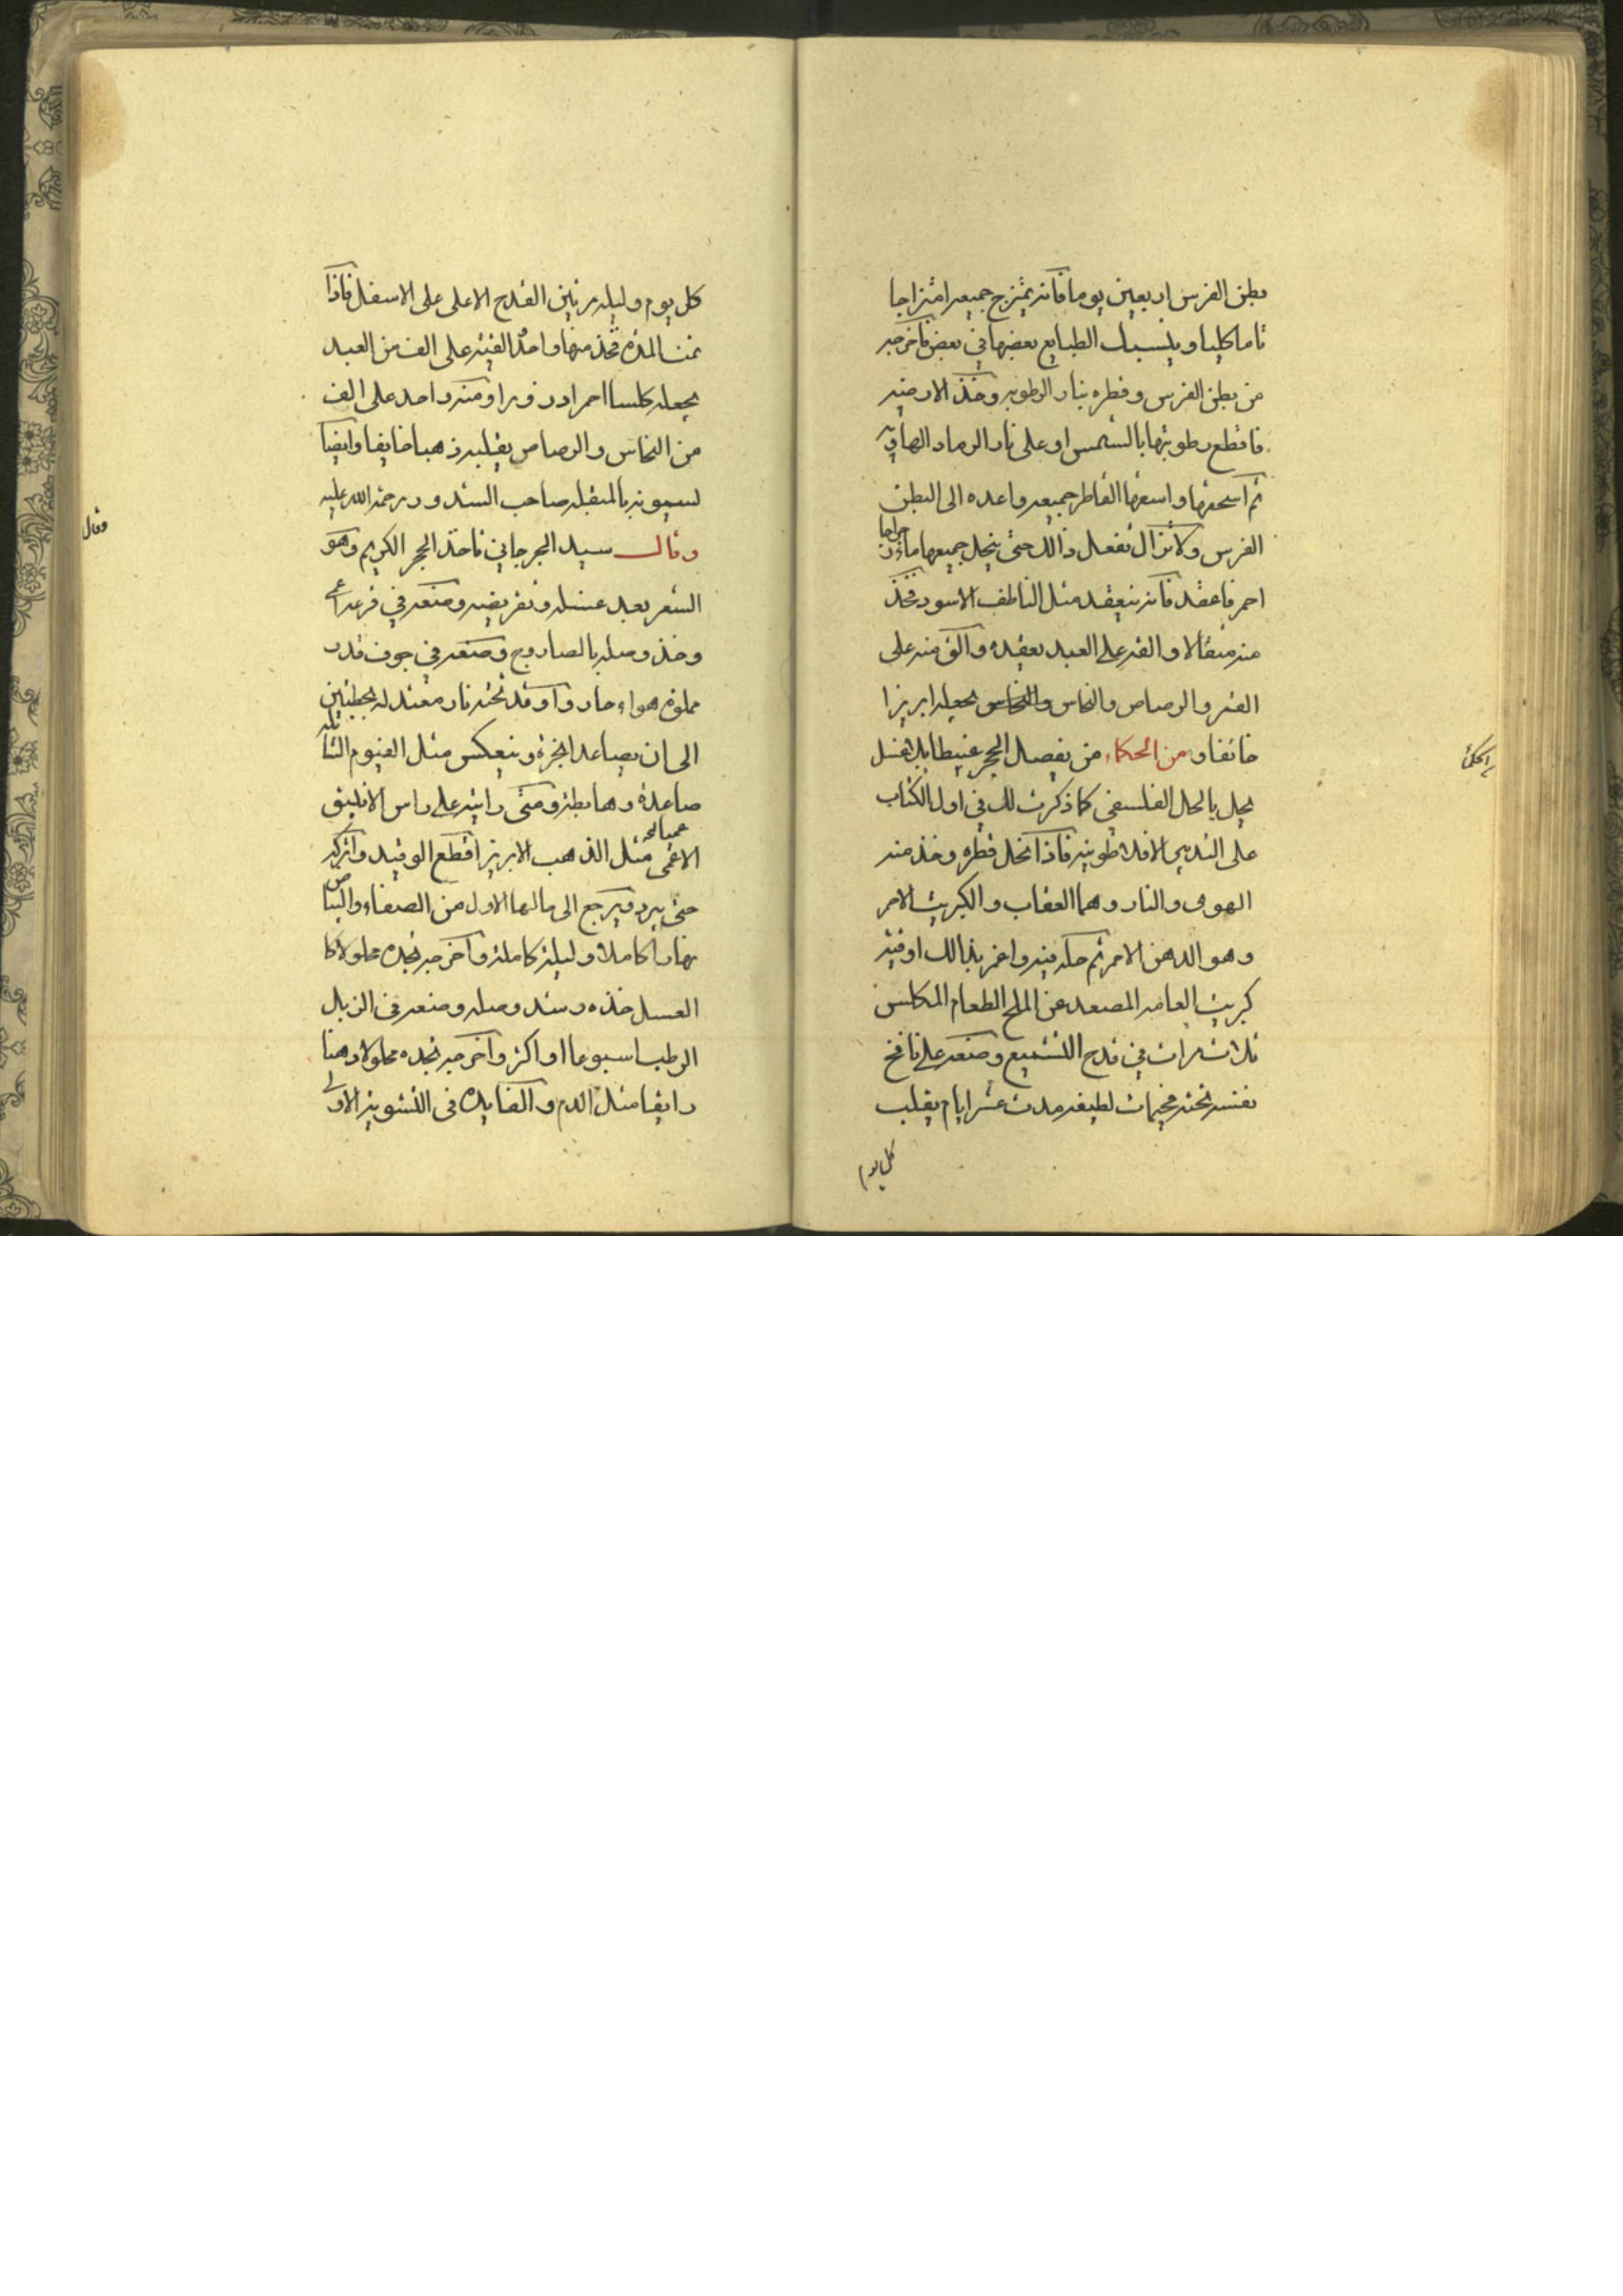 بطن الفرس اربعين يوما فانه يمتزج جميعه امتزاجا
تاما كليا ويشبك الطبايع بعضها في بعض فاخرجه
من بطن الفرس وقطره بنار الرطوبه وخذ الارضيه
فاقطع رطوبتها بالشمس او على نار الرماد الهاديه
ثم اسحقها واسقها القاطر جميعه واعده الى البطن
الفرس ولا تزال تفعل ذالك حتى ينحل جميعها ماء
احمر فاعقده فانه ينعقد مثل الناطف الاسود فخذ
منه مثقالا والقه على العبد يعقده والق منه على
القمر والرصاص والنحاس والنحاس يجعله ابريزا
خائفا ومن الحكماء من يفصل الحجر عبيطا بلا غسل
يحل بالحل الفلسفي كما ذكرت لك في اول الكتاب
على التدبير الافلاطونيه فاذا انحل قطره وخذ منه
الهوى والنار وهما العقاب والكبريت الاحمر
وهو الدهن الاحمر ثم حكه فيه واغمر بذالك اوقيه
كبريت العامه المصعد عن الملح الطعام المكلس
ثلاث مرات في قدح التشميع وضعه على نافخ
نفسه تحته فحيمات لطيفه مدت عشر ايام يقلب
كل يوم
كل يوم وليله مرتين القدح الاعلى على الاسفل فاذا
تمت المده فخذ منها واحد القيه على الف من العبد
يجعله كلسا احمرا درورا ومنه واحد على الف
من النحاس والرصاص يقلبه ذهبا خايفا وايضا
لسيونه بالمثقله صاحب الشدور رحمة الله عليه
وقال سيد الجرجاني تاخذ الحجر الكريم وهو
الشعر بعد غسله وتقريضه وضعه في قرعه
وخذ وصله بالصاروج وضعه في جوف قدر
مملوة هواء حار واوقد تحته نار معتدله بحطبتين
الى ان يصاعد ابخرة وينعكس مثل الغيوم
صاعدة وهابطة ومتى رايته على راس الانبيق
الاعمى مثل الذهب الابريز اقطع الوقيد واتركه
حتى يبرد ويرجع الى حالها الاول من الصفاء والبياض
نهارا كاملا وليلة كاملة واخرجه تجده محلولا كا
العسل خذه وشد وصله وضعه في الزبل
الرطب اسبوعا او اكثر واخرجه تجده محلولا دهنا
رايقا مثل الدم والفايده في التشويه الاولى